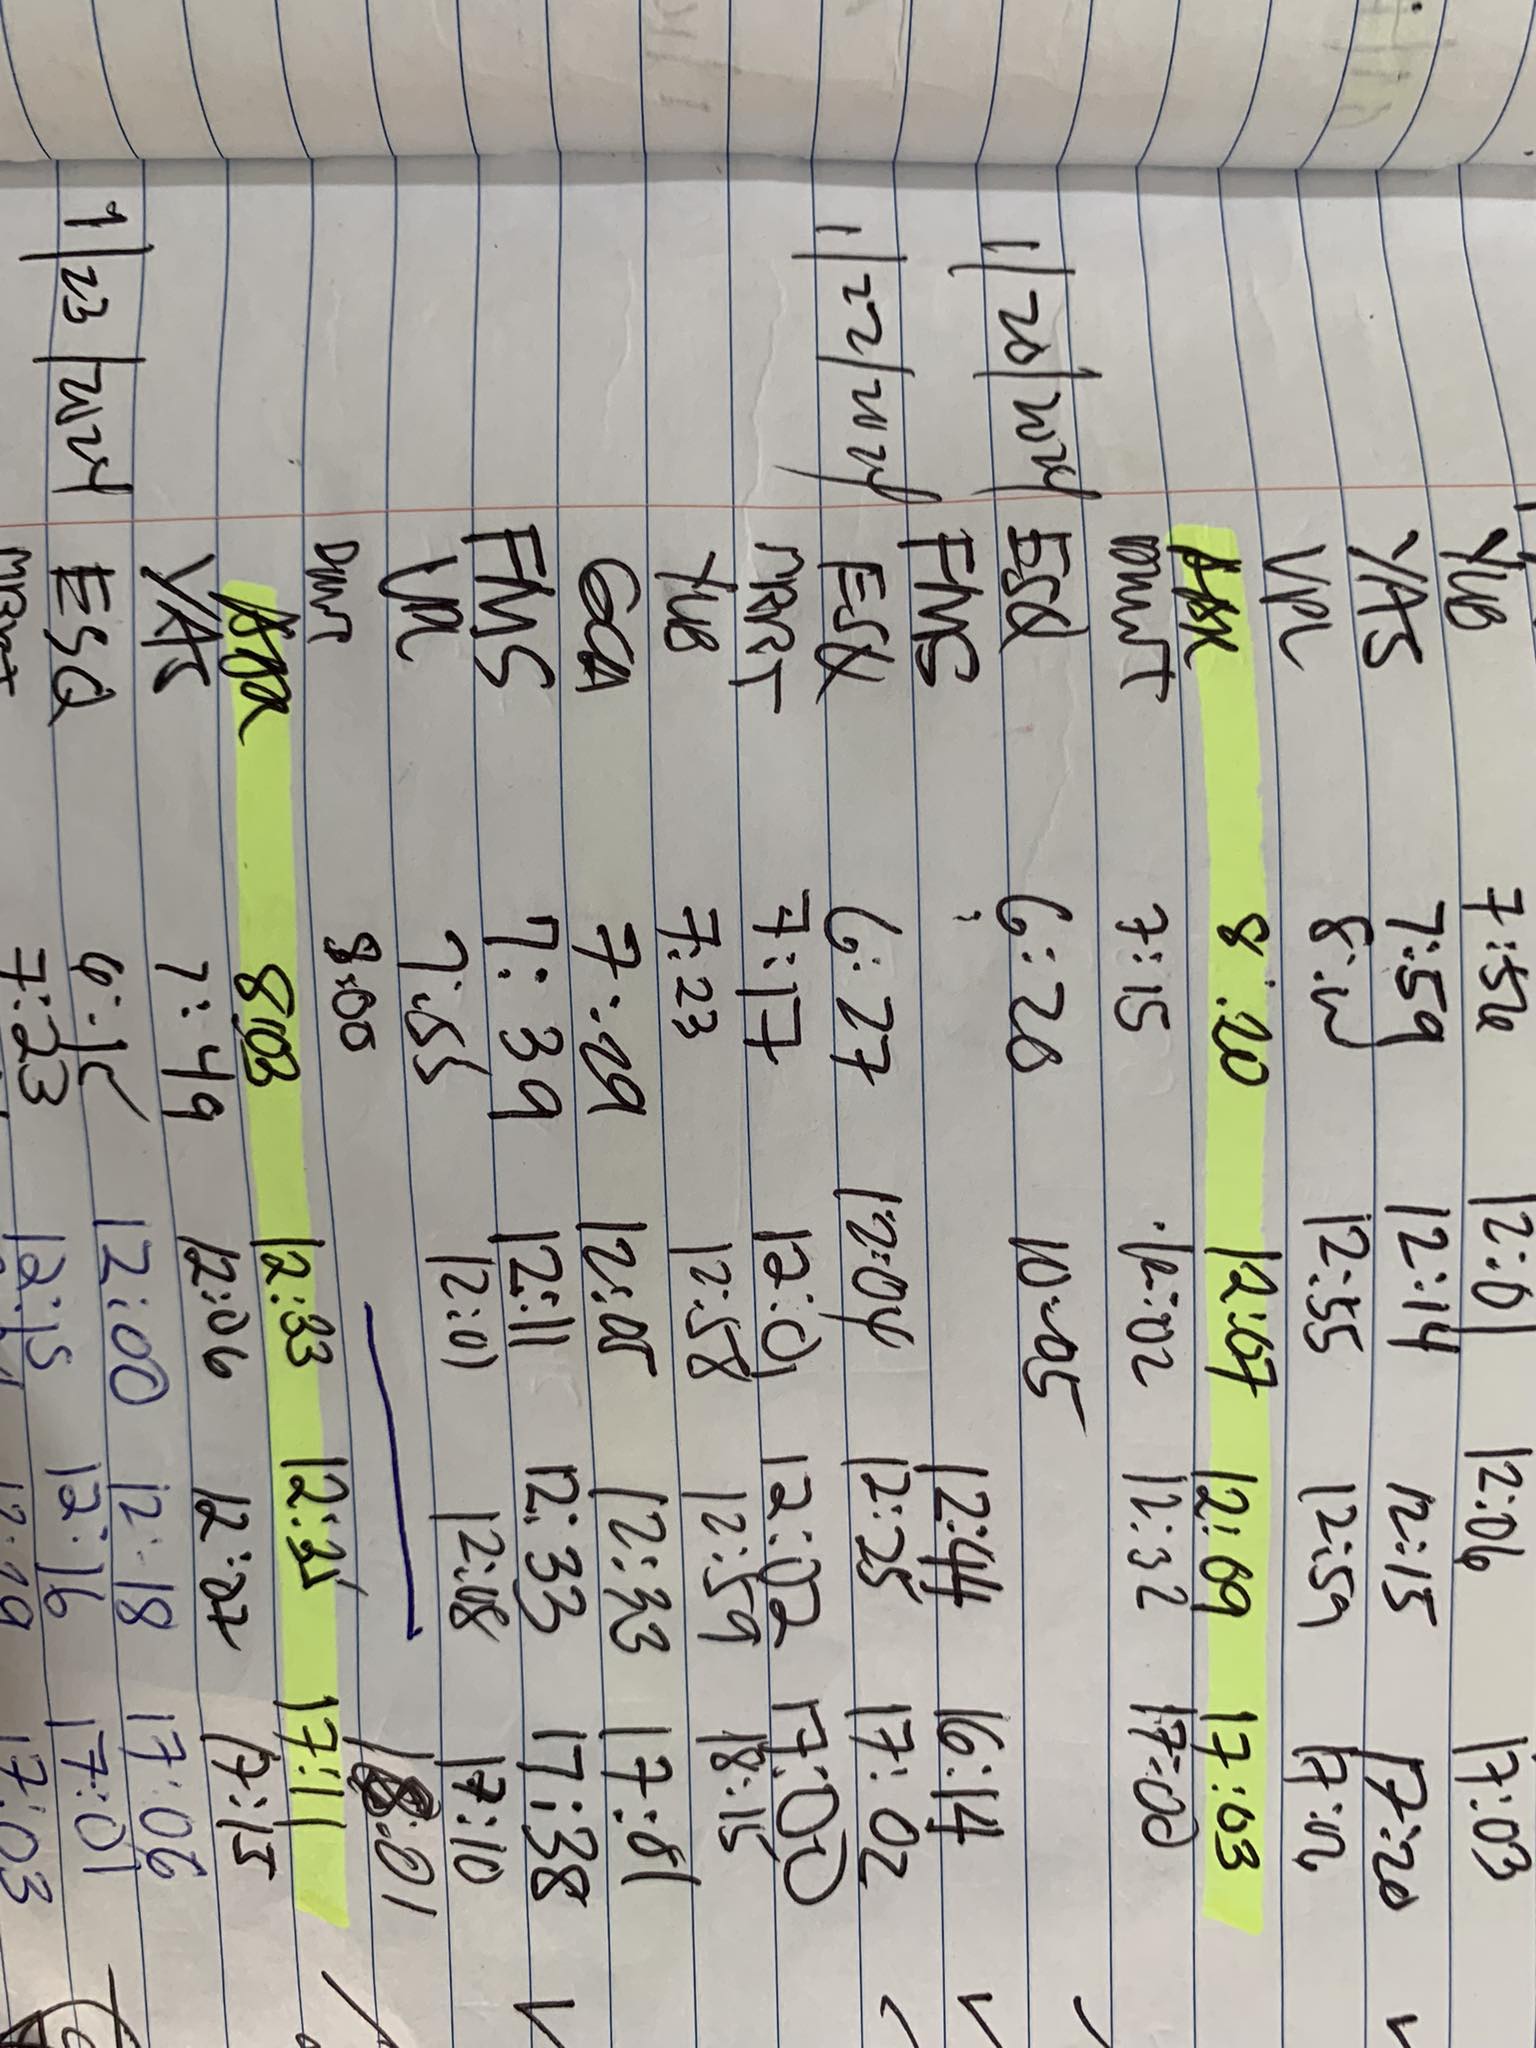 YUB 7:52 12:01 12:06 17:03
YAS 7:59 12:14 12:15 17:20
VPL 12:55 12:59
8:20 12:07 12:09 17:03
7:15 12:02 12:32 17:00
1/20/2024 ESQ 6:20 10:05
FMS 12:44 16:14
1/22/2024 ESQ 6:27 12:04 12:25 17:02
MBRT 7:17 12:01 12:02 17:00
YUB 7:23 12:58 12:59 18:15
GCA 7:29 12:05 12:33 17:01
FMS 7:39 12:11 12:33 17:38
VPL 7:55 12:01 12:08 17:10
8:00 18:01
8:03 12:33 12:35 17:11
YAS 7:49 12:06 12:27 17:15
1/23/2024 ESQ 12:00 12:18 17:06
7:23 12:15 12:16 17:01
17:03